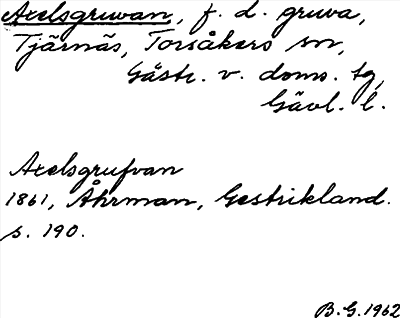 Axelsgruvan, f. d. gruva,
Tjärnäs, Torsåkers sn,
Gästr. v. doms. tg,
Gävl. l.
Axelsgrufvan
1861, Åhrman, Gestrikland.
s. 190.
B.G. 1962